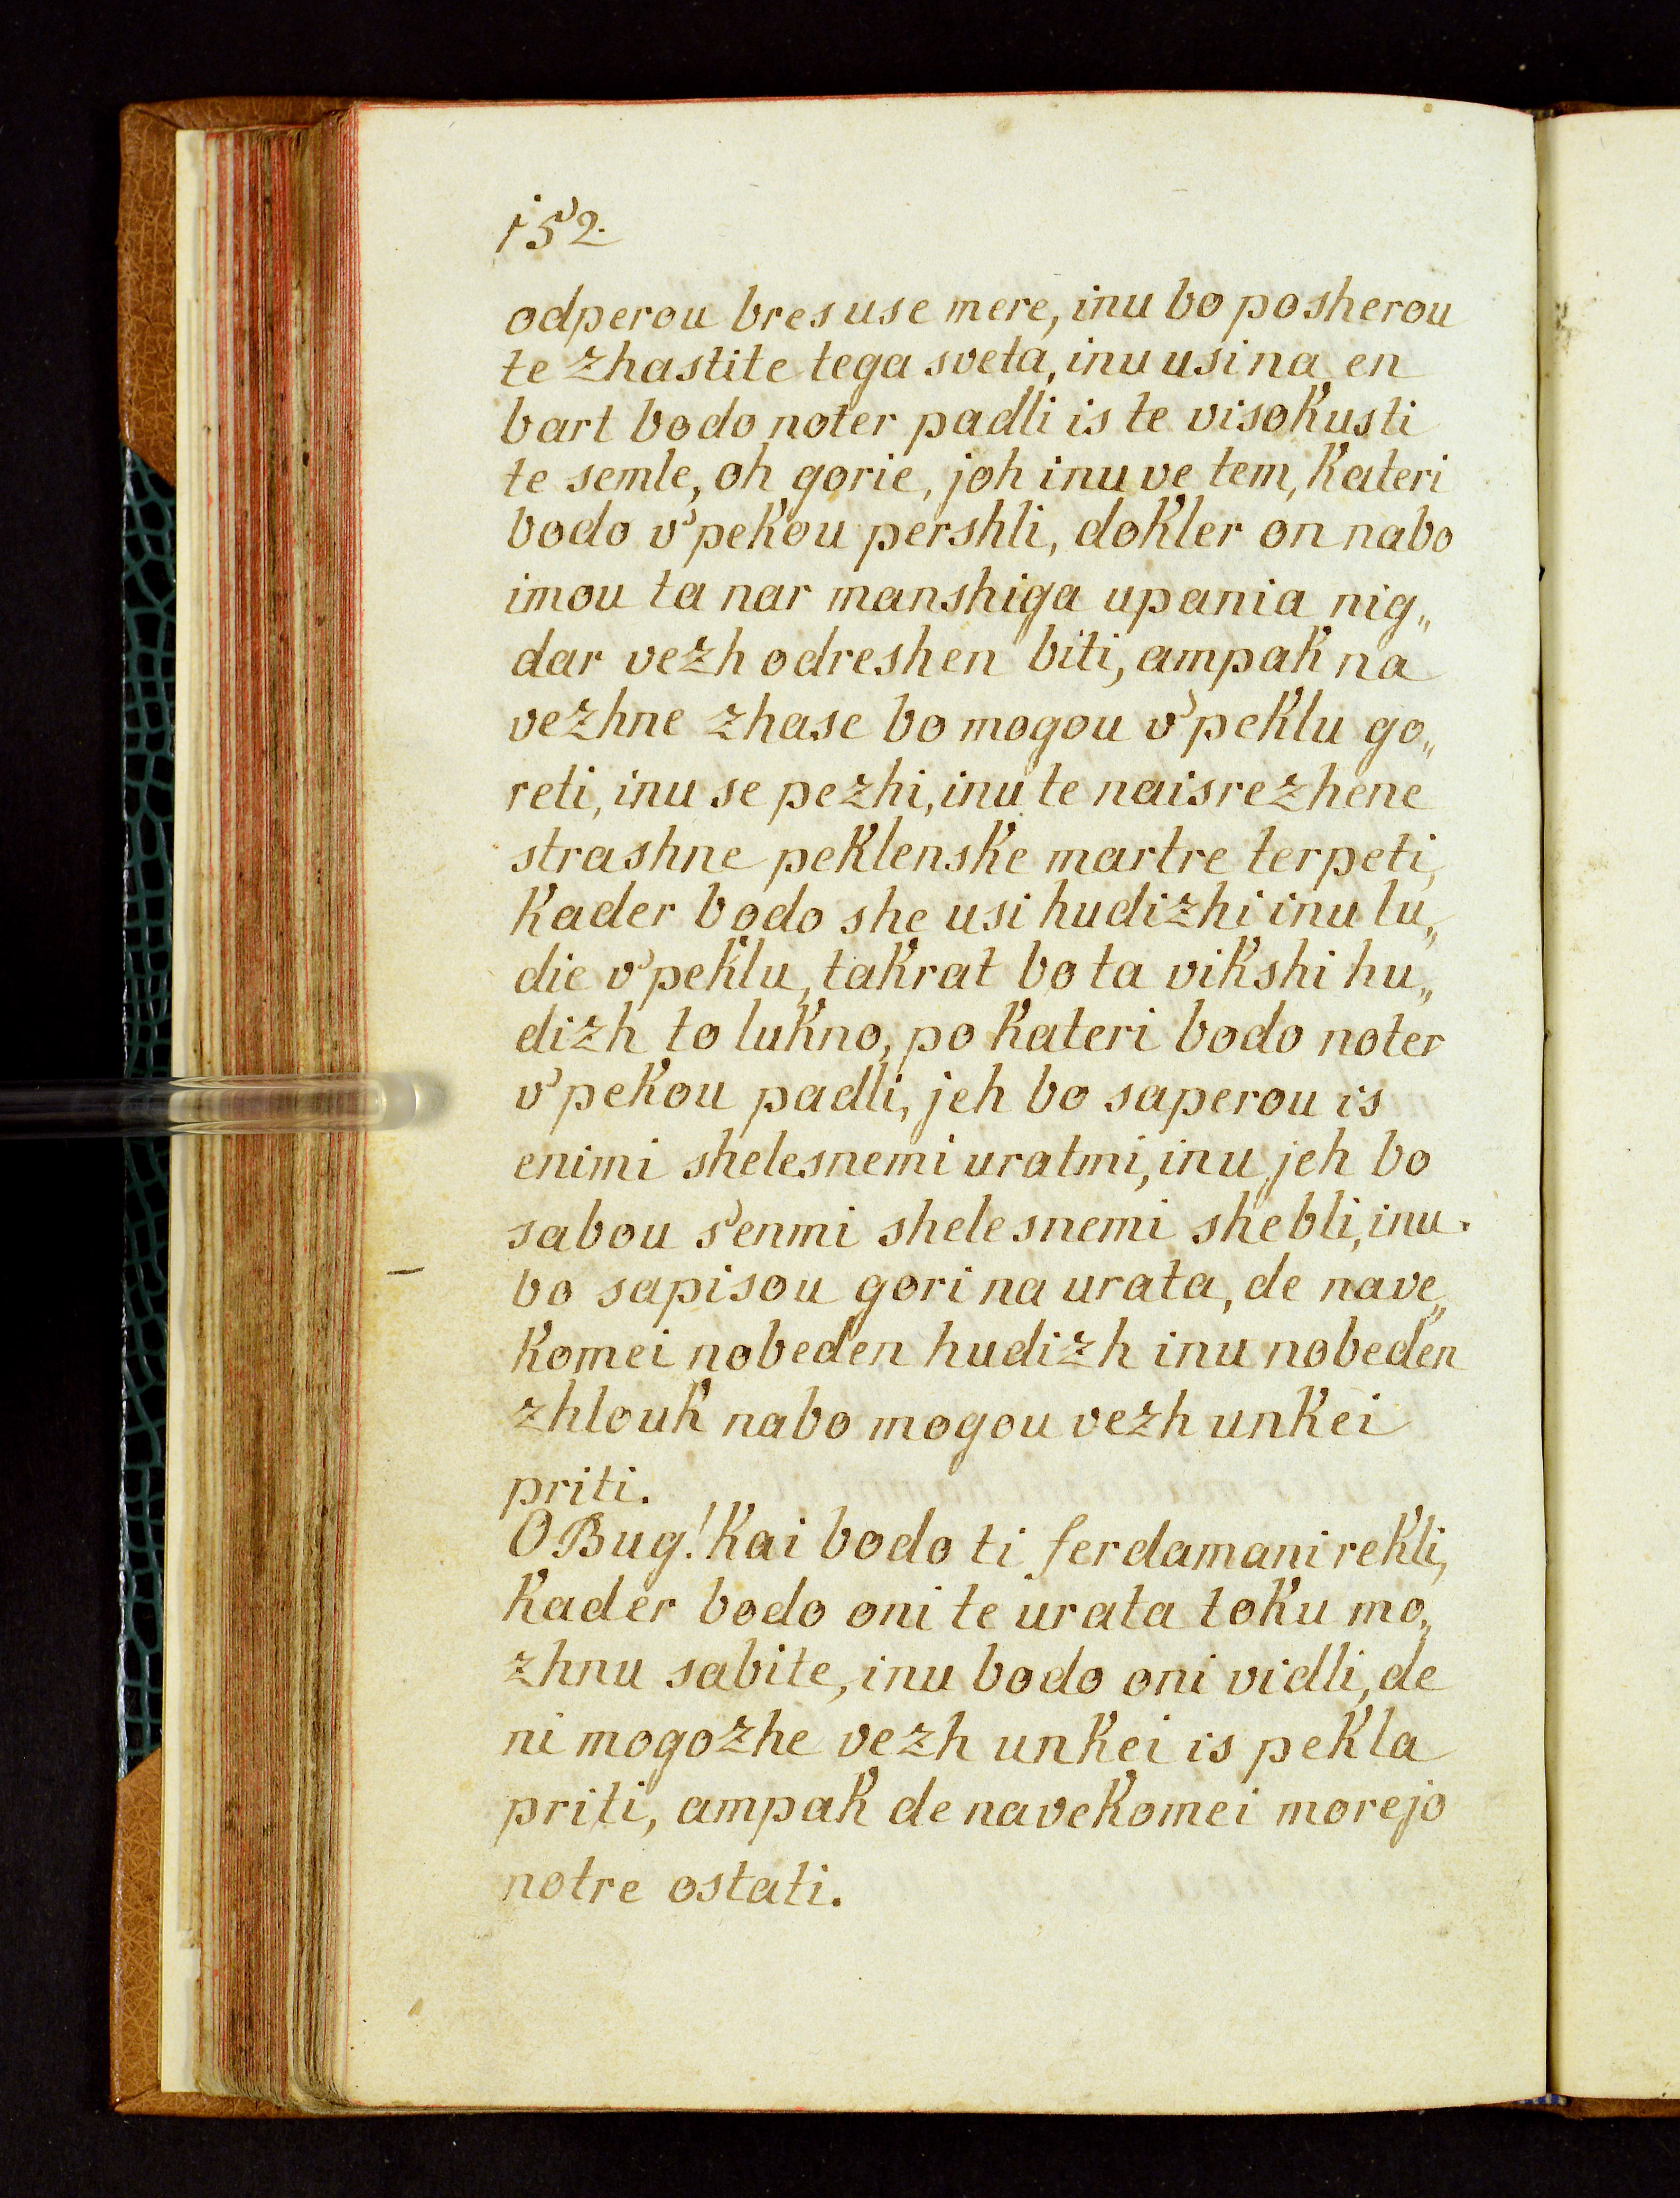 152.
odperou bres use mere, inu bo posherou
te zhastite tega sveta, inu usi na en
bart bodo noter padli is te visokusti
te semle, oh gorie, joh inu ve tem, kateri
bodo v'pekou pershli, dokler on nabo
imou ta nar manshiga upania nig„
dar vezh odreshen biti, ampak na
vezhne zhase bo mogou v'peklu go„
reti, inu se pezhi, inu te naisrezhene
strashne peklenske martre terpeti,
kader bodo she usi hudizhi inu lu„
die v'peklu, takrat bo ta vikshi hu„
dizh to lukno, po kateri bodo noter
v'pekou padli, jeh bo saperou is
enimi shelesnemi uratmi, inu jeh bo
sabou s'enmi shelesnemi shebli, inu
bo sapisou gori na urata, de nave„
komei nobeden hudizh inu nobeden
zhlouk nabo mogou vezh unkei
priti.
O Bug! kai bodo ti ferdamani rekli,
kader bodo oni te urata toku mo„
zhnu sabite, inu bodo oni vidli, de
ni mogozhe vezh unkei is pekla
priti, ampak de navekomei morejo
notre ostati.